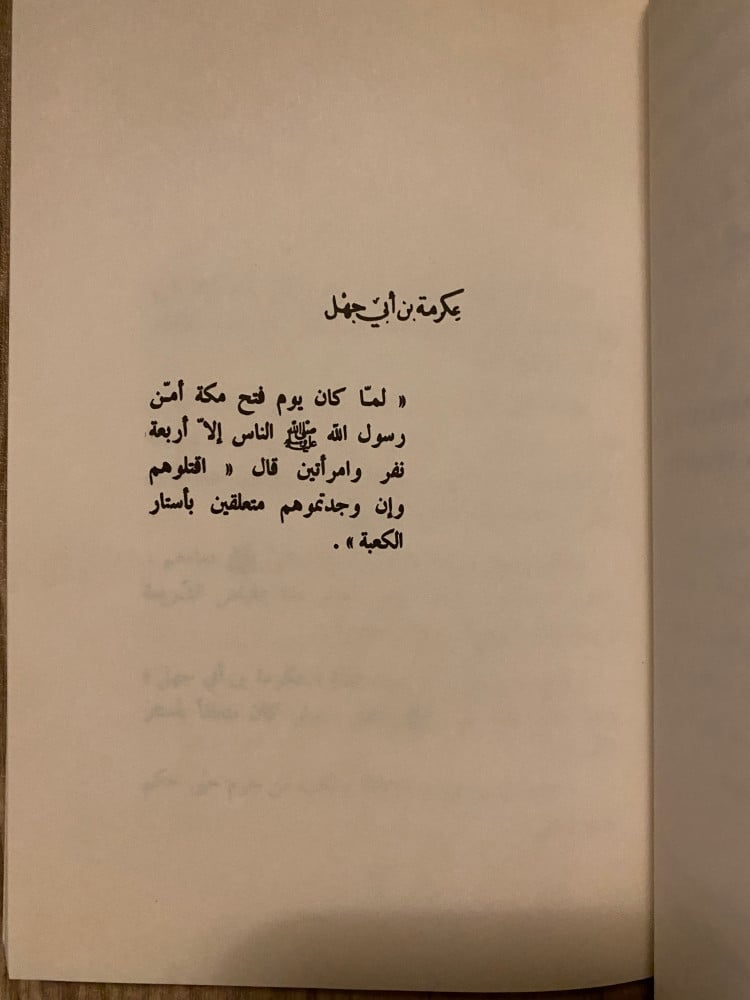 عكرمة بن أبي جهل
« لمّا كان يوم فتح مكة أمّن
رسول الله ﷺ الناس إلاّ أربعة
نفر وامرأتين قال « اقتلوهم
وإن وجدتموهم متعلقين بأستار
الكعبة » .